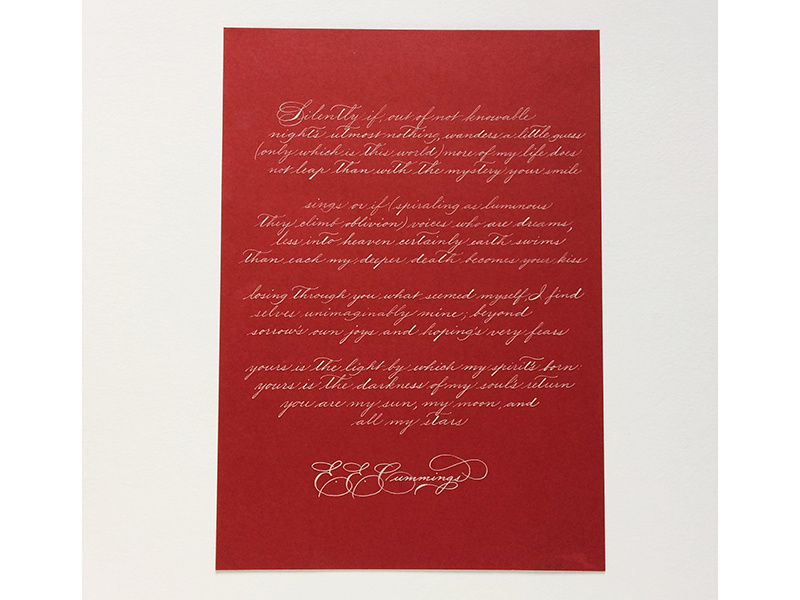 Silently if, out of not knowable
night's utmost nothing, wanders a little guess
(only which is this world) more of my life does
not leap than with the mystery your smile
sings or if (spiraling as luminous
they climb oblivion) voices who are dreams,
less into heaven certainly earth swims
than each my deeper death becomes your kiss
losing through you what seemed myself, I find
selves unimaginably mine; beyond
sorrow's own joys and hoping's very fears
yours is the light by which my spirit's born:
yours is the darkness of my soul's return
you are my sun, my moon, and
all my stars
E.E. Cummings